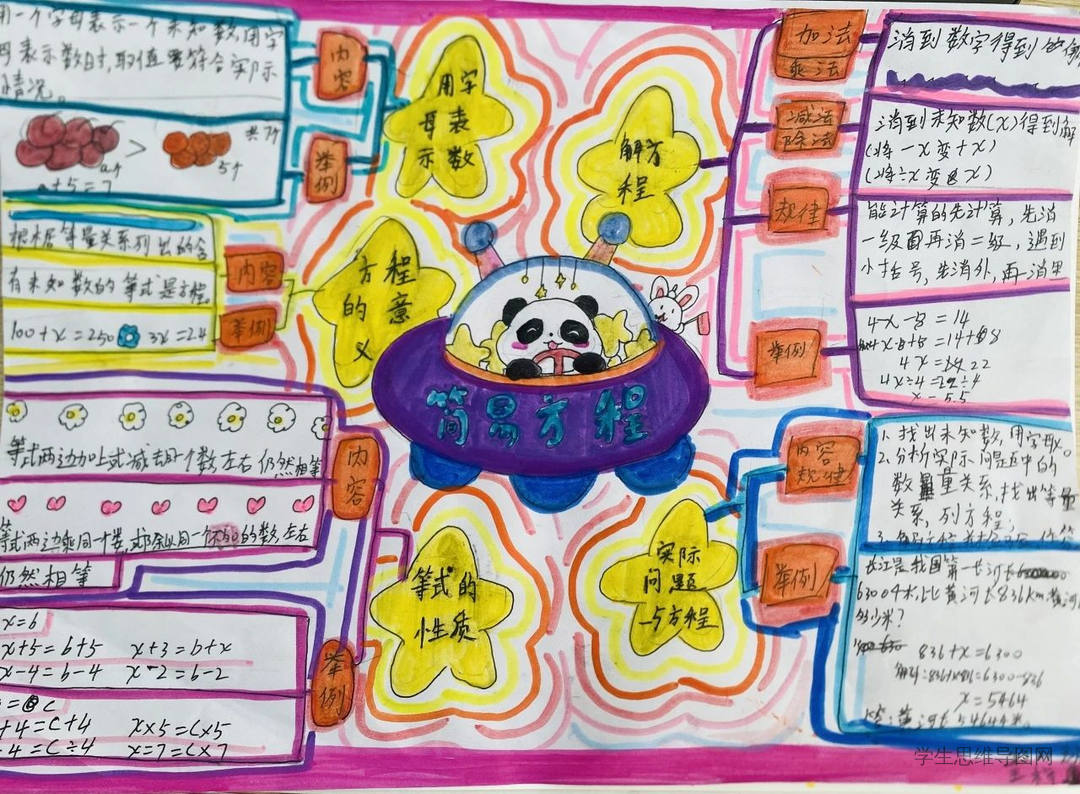 用一个字母表示一个未知数,用字
母表示数时,取值要符合实际
情况。
内容
共7个
a个
>
5个
a+5=7
举例
用字
母表
示数
根据等量关系列出的含
有未知数的等式是方程。
内容
100+x=250 3x=24
举例
方程
的意
义
等式两边加上或减去同一个数左右仍然相等
等式两边乘同一个数,或除以同一个不为0的数,左右
仍然相等
内容
x=b
x+5=b+5 x+3=b+x
x-4=b-4 x-2=b-2
=c
+4=c+4 x×5=c×5
÷4=c÷4 x=7=c×7
举例
等式的
性质
简易方程
解方
程
加法
乘法
消到数字得到的
减法
除法
消到未知数(x)得到解
(将-x变+x)
(将÷x变x)
规律
能计算的先计算,先消
一级面再消二级,遇到
小括号,先消外,再消里
举例
4-x-8=14
x-8+8=14+8
4x=22
4x÷4=22÷4
x=5.5
实际
问题
与方程
内容
规律
1.找出未知数,用字母x。
2.分析实际问题中的
数量关系,找出等量
关系,列方程;
举例
长江是我国第一长河长
6300千米,比黄河长836km,黄河
多少米?
836+x=6300
x=5464
学生思维导图网